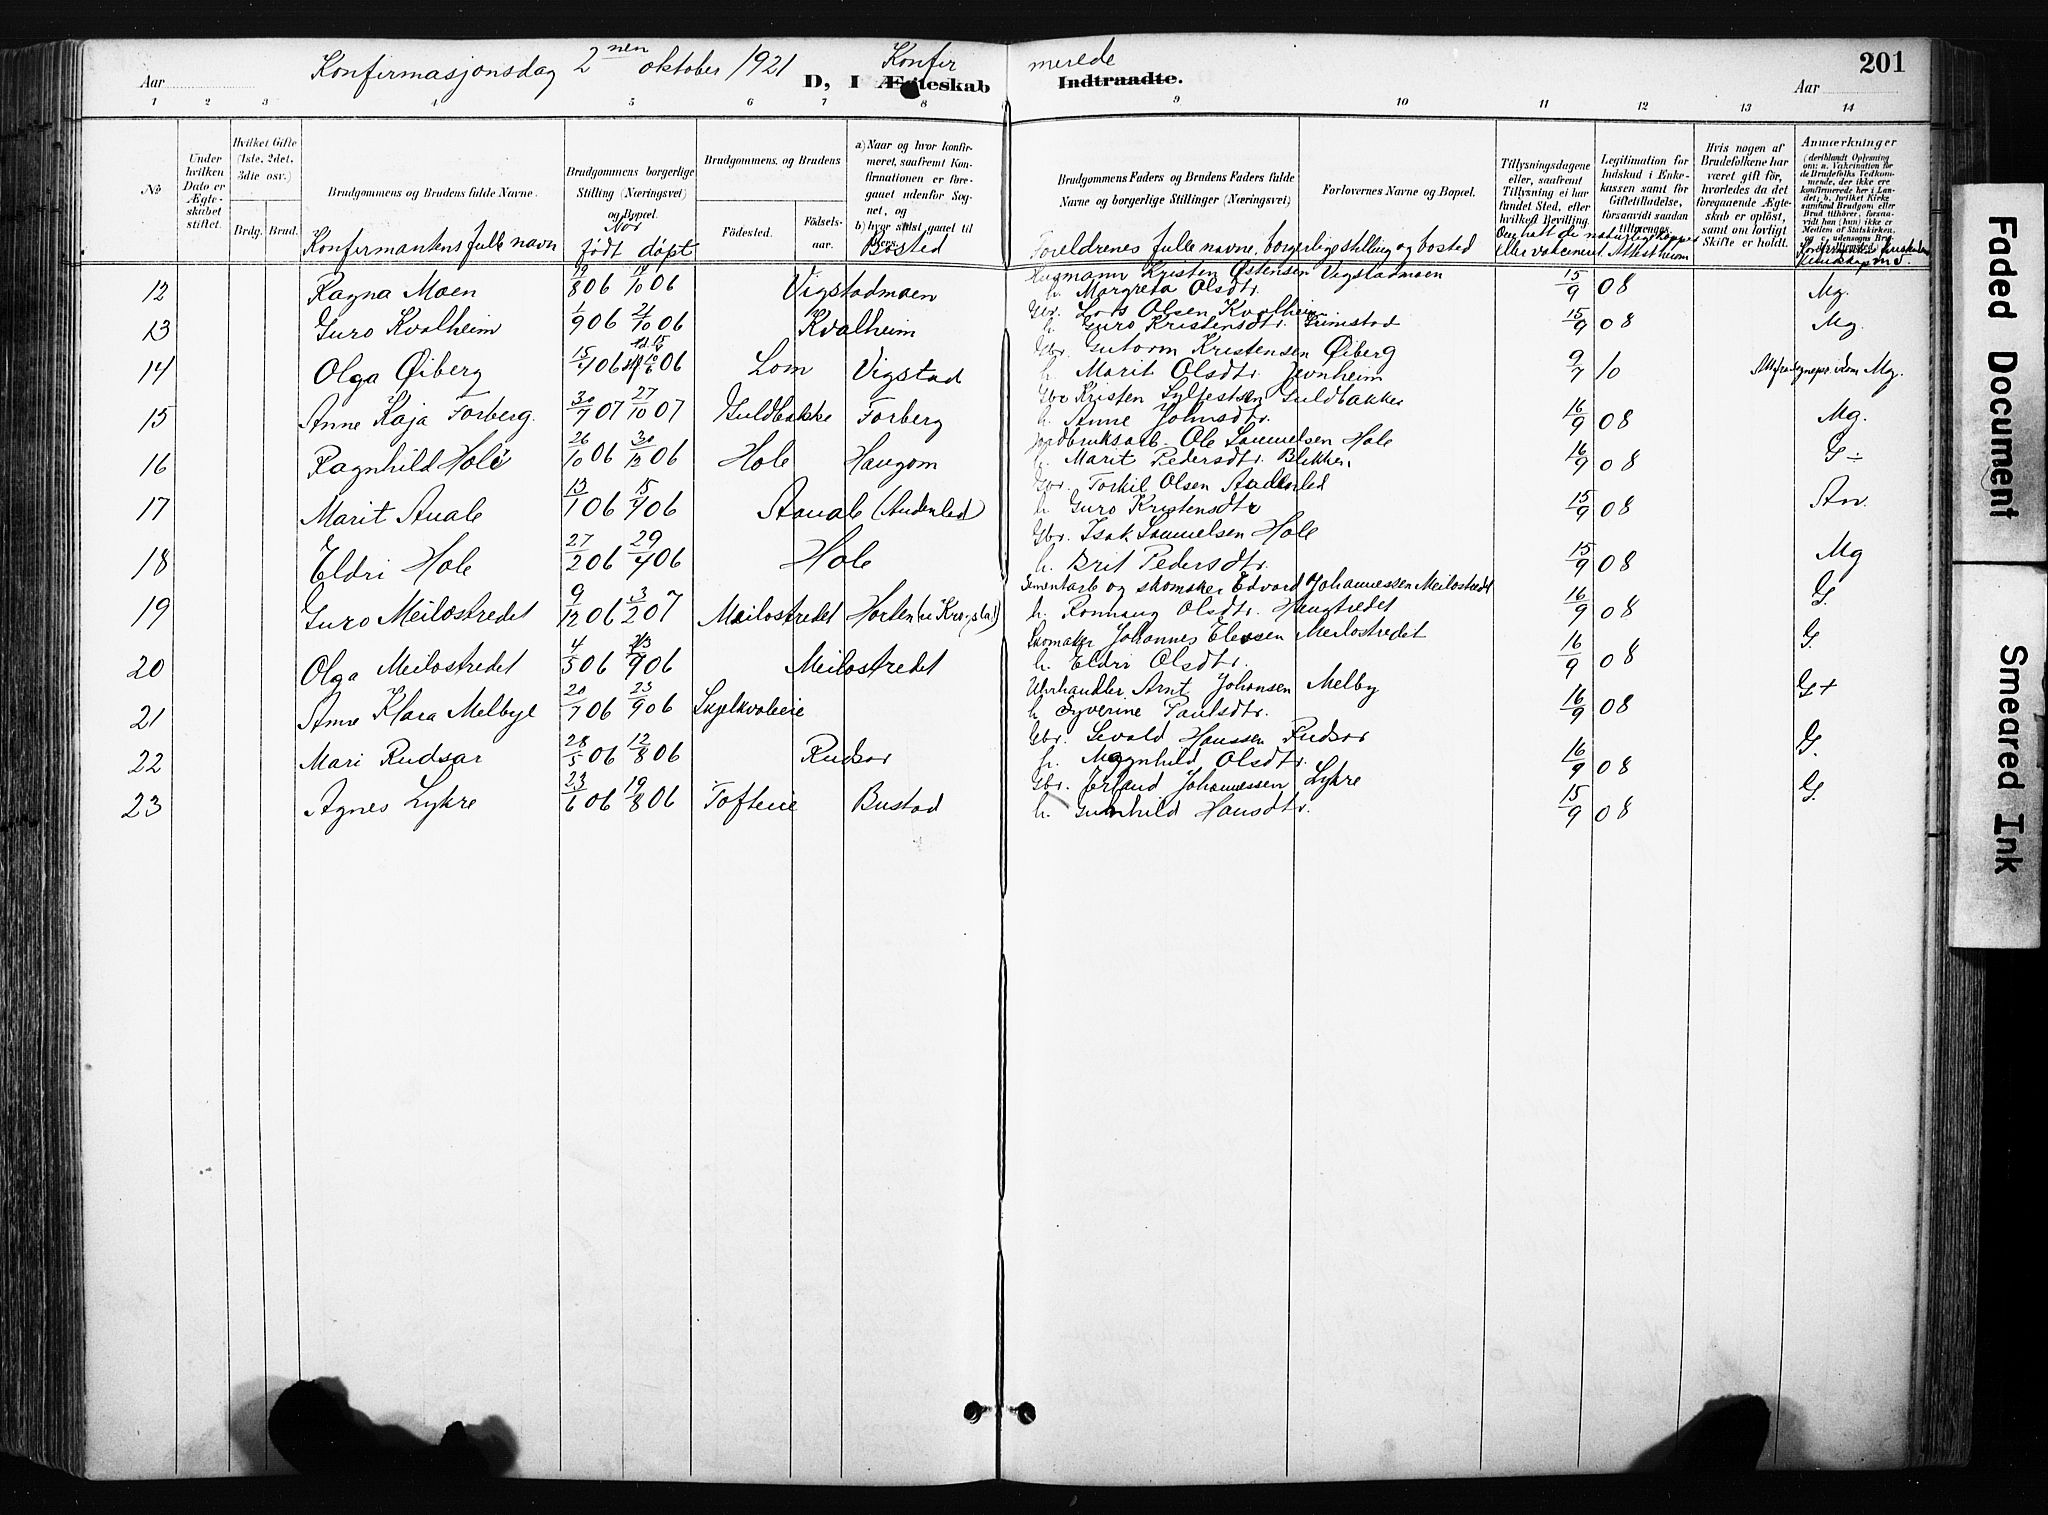 Konfirmasjonsdag 2nen oktober 1921 Konfirmerede
201
Aar
D, I Ægteskab Indtraadte.
Aar
1 2 3 4 5 6 7 8 9 10 11 12 13 14
No
Under hvilken Dato er Ægteskabet stiftet.
Hvilket Gifte (1ste, 2det, 3die osv.)
Brdg. Brud.
Brudgommens og Brudens fulde Navne.
Konfirmantens fulle navn
Brudgommens borgerlige Stilling (Næringsvei) og Bopæl.
Når født døpt
Brudgommens og Brudens
Födested. Födselsaar.
a) Naar og hvor konfirmeret, saafremt Konfirmationen er foregaaet udenfor Sognet, og
b) hvor sidst gaaet til Alters.
Bosted
Brudgommens Faders og Brudens Faders fulde Navne og borgerlige Stillinger (Næringsvei)
Forlovernes Navne og Bopæl.
Foreldrenes fulle navne, borgerlige stilling og bosted
Tillysningsdagene eller, saafremt Tillysning ei har fundet Sted, efter hvilken Bevilling.
Legitimation for Indskud i Enkekassen samt for Giftetilladelse, forsaavidt saadan tiltrænges.
Om hatt de naturlige kopper eller vaksinert. Attest herom
Hvis nogen af Brudefolkene har været gift før, hvorledes da det foregaaende Ægteskab er oplöst, samt om lovligt Skifte er holdt.
Anmerkninger
12 Ragna Moen 19/8 06 14/10 06 Vigstadmoen Husmann Kristen Østensen Vigstadmoen
h. Margreta Olsdtr. 15/9 08 Mg.
13 Guro Kvalheim 1/9 06 21/10 06 Kvalheim Gbr. Lars Olsen Kvalheim
h. Guro Kristensdtr. Grimstad 15/9 08 Mg.
14 Olga Øiberg 15/4 06 06 Lom Vigstad Gbr. Gutorm Kristensen Øiberg
h. Marit Olsdtr. Jevnheim 9/7 10 Mg.
15 Anne Kaja Forberg. 30/9 07 27/10 07 Guldbakke Forberg Gbr Kristen Sylfestsen Guldbakke
h. Anne Johnsdtr. 16/9 08 Mg.
16 Ragnhild Hole 26/10 06 30/12 06 Hole Haugom Jordbruksarb. Ole Samuelsen Hole
h. Marit Pedersdtr. Blikken 16/9 08 G÷
17 Marit Aaale 13/1 06 15/4 06 Aaale (Andenled) Gbr. Torkil Olsen
h Guro Kristensdtr 15/9 08
18 Eldri Hole 27/2 06 29/4 06 Hole Gbr. Isak Samuelsen Hole
h. Brit Pedersdtr. 15/9 08 Mg
19 Guro Meilostredet 9/12 06 3/2 07 Meilostredet Horten Sementarb og skomaker Edvard Johannessen Meilostredet
h. Ronnaug Olsdtr. Haugtredet 16/9 08 G.
20 Olga Meilostredet 4/5 06 06 Meilostredet Skomaker Johannes Meilostredet
h. Eldri Olsdtr. 16/9 08 G.
21 Anne Klara Melbye 20/7 06 23/9 06 Skjelkvaleie Uhrhandler Arnt Johansen Melby
h Syverine Paulsdtr. 16/9 08 G+
22 Mari Rudsar 28/5 06 12/8 06 Rudsar Gbr. Sevald Hanssen Rudsar
h. Magnhild Olsdtr. 16/9 08 G.
23 Agnes Lykre 23/6 06 19/8 06 Tofteie Bustad Gbr. Erland Johannessen Lykre
h. Gunhild Hansdtr. 15/9 08 G.
Faded Document
Smeared Ink